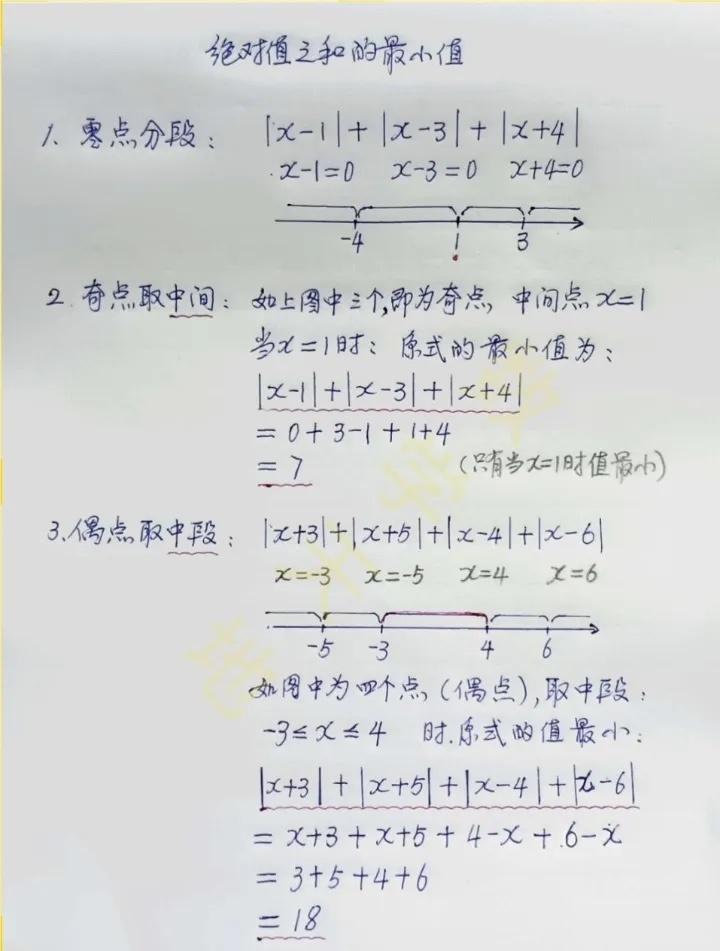 绝对值之和的最小值
1. 零点分段： |x-1|+|x-3|+|x+4|
x-1=0 x-3=0 x+4=0
-4 1 3
2. 奇点取中间： 如上图中三个,即为奇点, 中间点x=1
当x=1时： 原式的最小值为：
|x-1|+|x-3|+|x+4|
=0+3-1+1+4
=7 (只有当x=1时值最小)
3.偶点取中段： |x+3|+|x+5|+|x-4|+|x-6|
x=-3 x=-5 x=4 x=6
-5 -3 4 6
如图中为四个点(偶点),取中段：
-3≤x≤4 时.原式的值最小：
|x+3|+|x+5|+|x-4|+|x-6|
=x+3+x+5+4-x+6-x
=3+5+4+6
=18